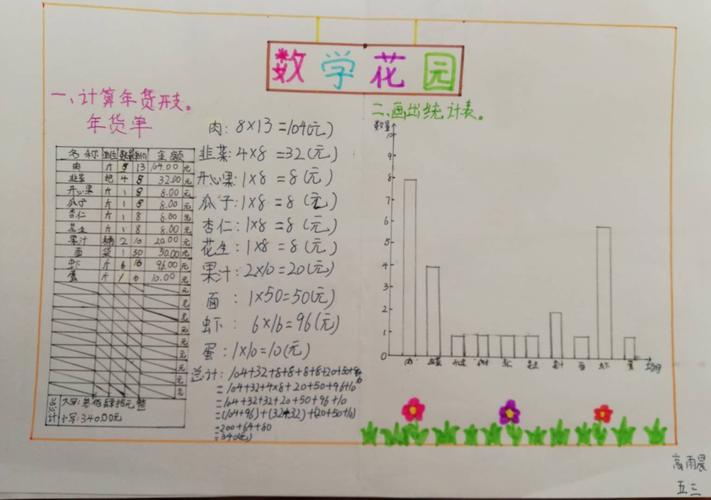 数学花园
一、计算年货开支。
年货单
名称 单位 数量 单价 金额
肉 斤 8 13 104.00 元
韭菜 把 4 8 32.00 元
开心果 斤 1 8 8.00 元
瓜子 斤 1 8 8.00 元
杏仁 斤 1 8 8.00 元
花生 斤 1 8 8.00 元
果汁 2 10 20.00 元
面 袋 1 50 50.00 元
虾 斤 6 16 96.00 元
蛋 斤 1 10 10.00 元
元
元
元
元
元
元
元
元
总计 大写: 叁佰肆拾元整
小写: 340.00元
肉: 8×13=104(元)
韭菜: 4×8=32(元)
开心果: 1×8=8(元)
瓜子: 1×8=8(元)
杏仁: 1×8=8(元)
花生: 1×8=8(元)
果汁: 2×10=20(元)
面: 1×50=50(元)
虾: 6×16=96(元)
蛋: 1×10=10(元)
总计: 104+32+8+8+8+8+20+50+96
=104+32+4×8+20+50+96+10
=104+32+32+20+50+96+10
=(104+96)+(32+32)+(20+50+10)
=200+64+80
=340(元)
二、画出统计表。
数量
10
9
8
7
6
5
4
3
2
1
0
肉 韭菜 开心果 瓜子 杏仁 花生 果汁 面 虾 蛋
高雨晨
五三